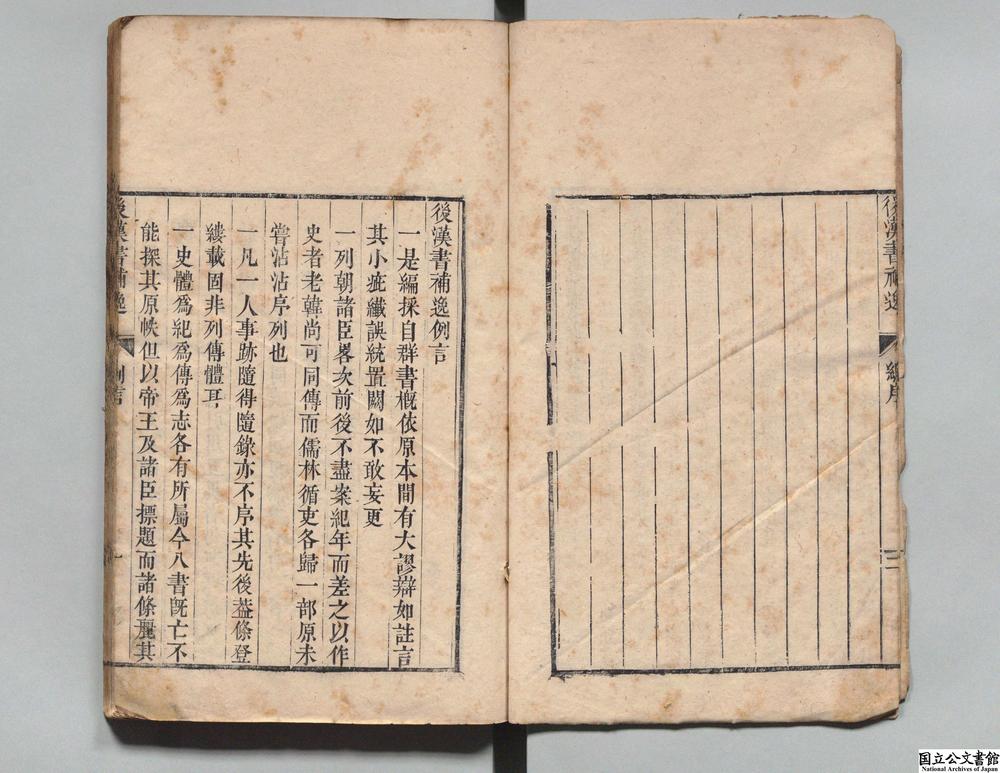 後漢書補逸
總序
二
後漢書補逸例言
一是編採自群書槪依原本間有大謬辯如註言
其小疵纖誤統置闕如不敢妄更
一列朝諸臣畧次前後不盡案紀年而差之以作
史者老韓尚可同傳而儒林循吏各歸一部原未
嘗沾沾序列也
一凡一人事跡隨得隨錄亦不序其先後葢條登
縷載固非列傳體耳
一史體爲紀爲傳爲志各有所屬今八書旣亡不
能探其原帙但以帝王及諸臣摽題而諸條麗其
後漢書補逸
例言
一
国立公文書館
National Archives of Japan